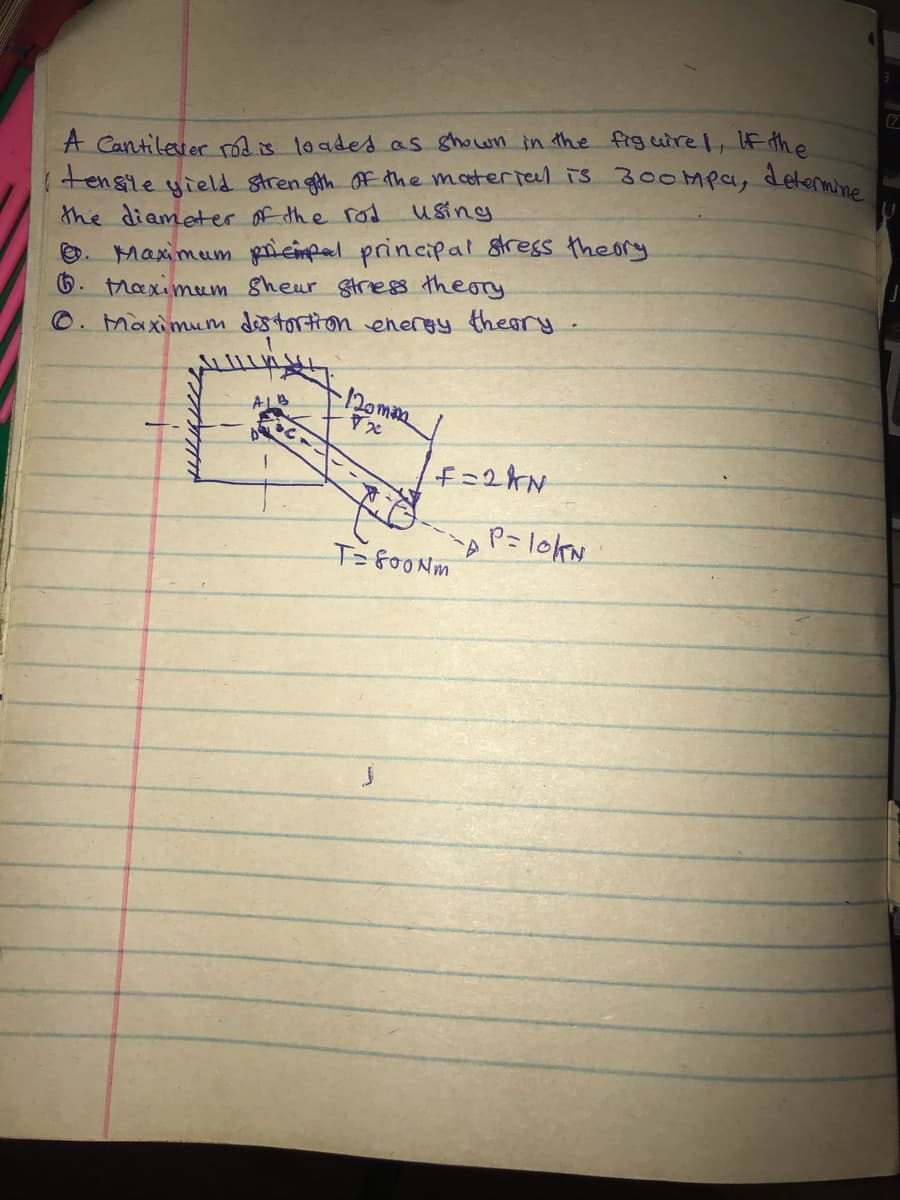 A Cantilever rod is loaded as shown in the figuire 1, If the
tensile yield strength of the material is 300 Mpa, determine
the diameter of the rod using
a. Maximum principal stress theory
b. Maximum shear stress theory
c. Maximum distortion energy theory.
A B
120mm
x
D C
F=2kN
P=10kN
T=800Nm